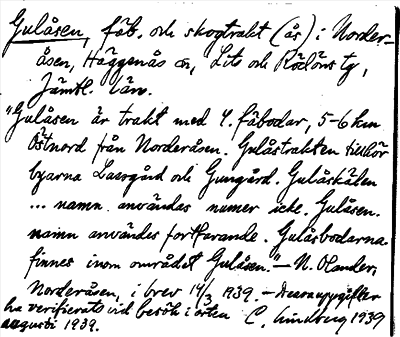 Gulåsen, fäb. och skogtrakt (ås) i Norder-
åsen, Häggenås sn, Lits och Rödöns tg,
Jämtl. län.
"Gulåsen är trakt med 4 fäbodar, 5-6 km
Östnord från Norderåsen. Gulåstrakten tillhör
byarna Lassgård och Gungård. Gulåskälen
... namn användas numer icke. Gulåsen.
namn användes fortfarande. Gulåsbodarna
finnes inom området Gulåsen." — N. Olander,
Norderåsen, i brev 14/3 1939. — Dessa uppgifter
ha verifierats vid besök i orten C. Lindberg 1939
augusti 1939.